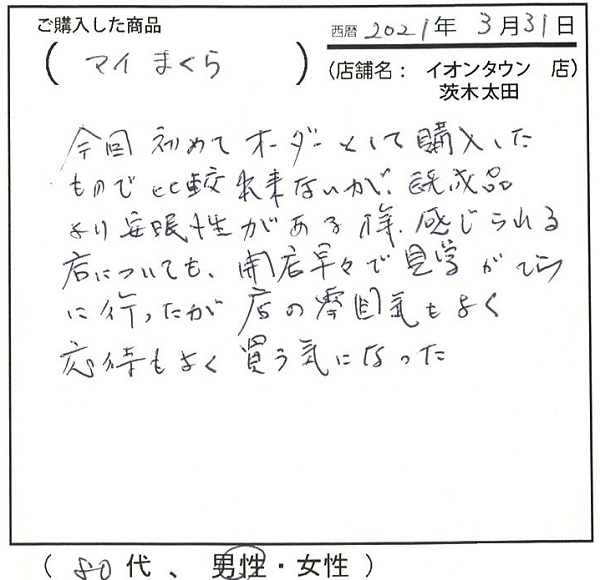 ご購入した商品
西暦 2021年 3月31日
( マイまくら )
(店舗名： イオンタウン 店)
茨木太田
今回 初めてオーダーとして購入した
もので比較出来ないが、既成品
より安眠性がある様、感じられる
店についても、開店早々で見学がてら
に行ったが 店の雰囲気もよく
応待もよく 買う気になった
( 80代 、 男性・女性 )